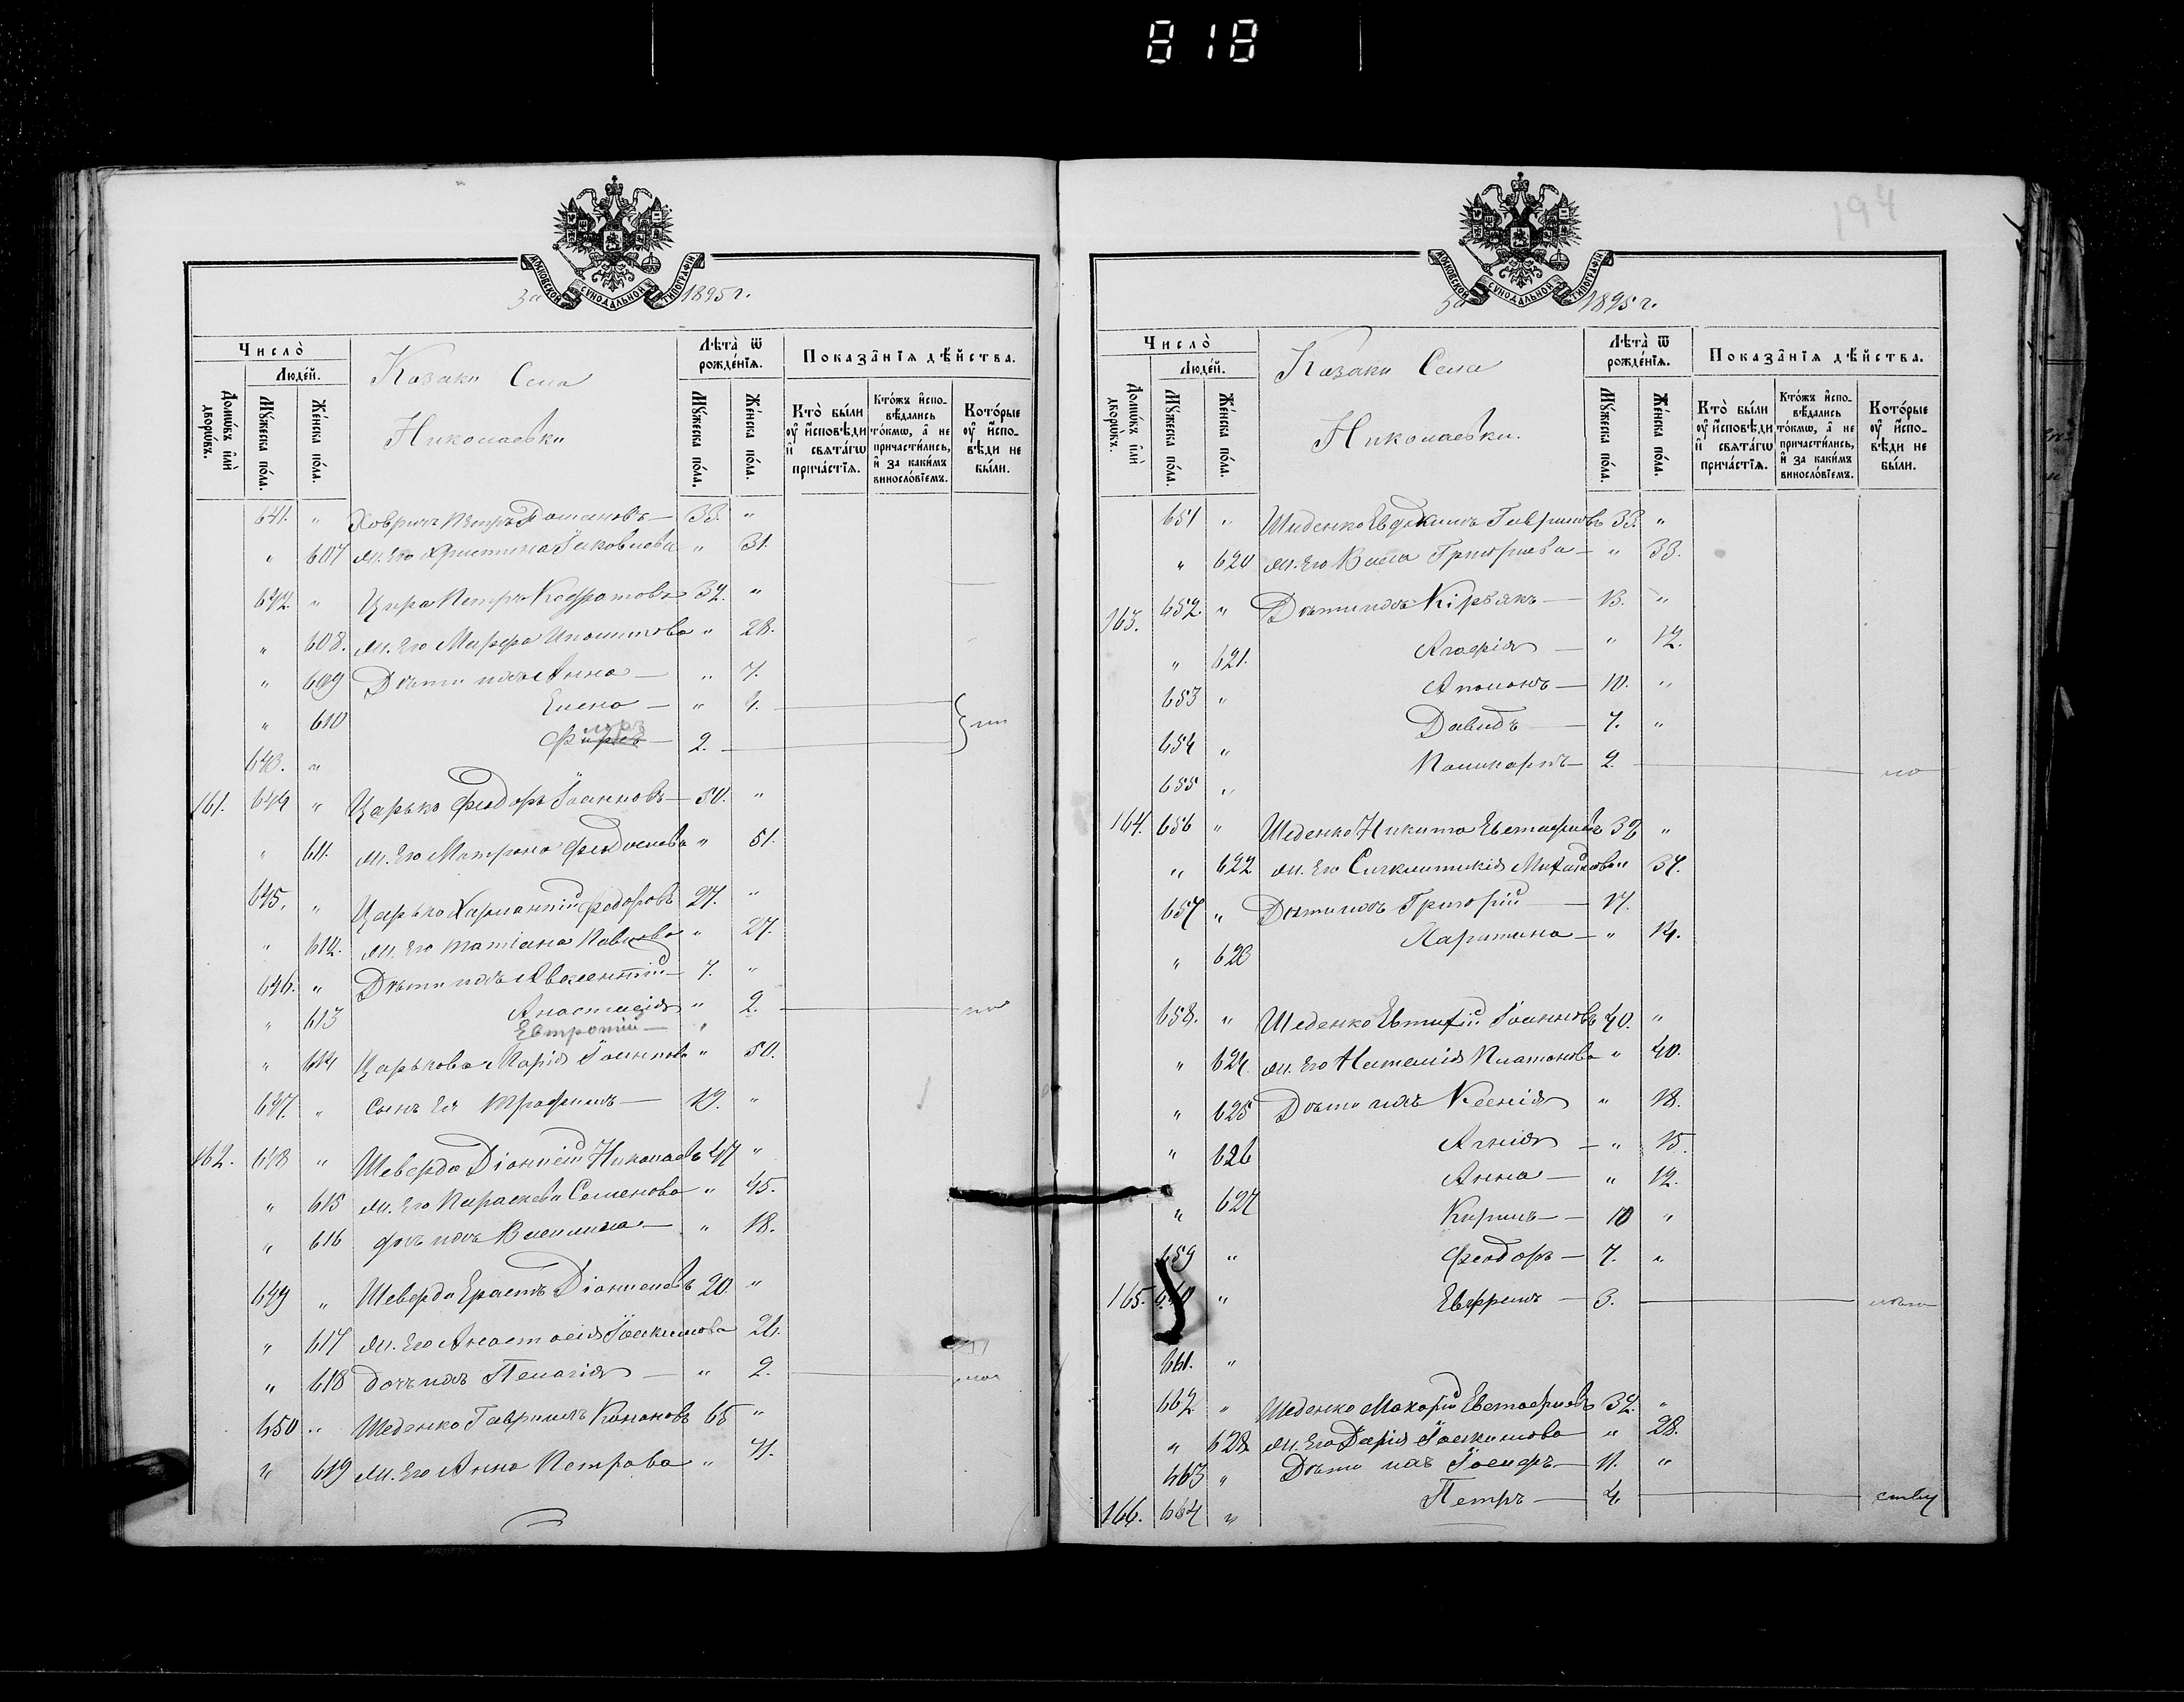 818
МОСКОВСКОЙ СУНОДАЛЬНОЙ ТИПОГРАФІИ
За 1895 г.
Число̀
Людей.
Домѡвъ илѝ дворѡвъ.
Мꙋжеска пола.
Женска пола.
Казаки Села
Николаевки
Лѣта̀ ѿ рожденїѧ.
Мꙋжеска пола.
Женска пола.
Показанїѧ дѣйства.
Кто̀ были оу исповѣди и свѧтагѡ причастїѧ.
Ктожъ исповѣдались токмѡ, а не причастились, и за какимъ винословїемъ.
Которые оу исповѣди не были.
641. " Ховричъ Петръ Потаповъ — 33. "
" 607 ж. Его Христина Іаковлева " 31.
642. " Цира Петръ Кодратовъ 32. "
" 608. ж. Его Марфа Иполитова " 28.
" 609 Дѣти ихъ Анна — " 7.
" 610 Елена — " 4.
643. " 2.
161. 644 " Царько Феодоръ Іоанновъ — 50. "
" 611. ж. Его Матрона Феодосіева " 51.
645. " Царько Харлампій Федоровъ 27. "
" 612. ж. Его Татіана Павлова " 27.
646. " Дѣти ихъ Авксентій — 7. "
" 613 Анастасія " 2. — по
Евтропій —
" 614 Царькова Марія Іоаннова " 50.
647. " Сынъ Ея Трофимъ — 19. "
162. 648 " Шеверда Діонисій Николаевъ 47 "
" 615 ж. Его Параскева Семенова " 45.
" 616 дочь ихъ Василиса — " 18.
649 " Шеверда Ерастъ Діонисіевъ 20. "
" 617 ж. Его Анастасія Іоакимова 21.
" 618 дочь ихъ Пелагія — " 2.
650 " Шеденко Гавриилъ Кононовъ 65 "
" 619 ж. Его Анна Петрова " 41.
194
МОСКОВСКОЙ СУНОДАЛЬНОЙ ТИПОГРАФІИ
За 1895 г.
Число̀
Людей.
Домѡвъ илѝ дворѡвъ.
Мꙋжеска пола.
Женска пола.
Казаки Села
Николаевки.
Лѣта̀ ѿ рожденїѧ.
Мꙋжеска пола.
Женска пола.
Показанїѧ дѣйства.
Кто̀ были оу исповѣди и свѧтагѡ причастїѧ.
Ктожъ исповѣдались токмѡ, а не причастились, и за какимъ винословїемъ.
Которые оу исповѣди не были.
651 " Шиденко Евдокимъ Гавриловъ 33. "
" 620 ж. Его Васса Григориева — " 33.
163. 652. " Дѣти ихъ Кірьякъ — 13. "
" 621. Агафія — " 12.
653 " Аполонъ — 10. "
654 " Давидъ — 7. "
655 " Поликарпъ — 2 — по
164. 656 " Шеденко Никита Евстафіевъ 39 "
" 622 ж. Его Синклитикія Михайлова " 37.
657 " Дѣти ихъ Григорій — 17.
" 623 Харитина — " 14.
658. " Шеденко Евтихій Іоанновъ 40. "
" 624. ж. Его Наталія Платонова " 40.
" 625 Дѣти ихъ Ксенія " 18.
" 626 Агнія — " 15.
" 627 Анна — " 12.
659 " Кирилъ — 10 "
165. 660 " Феодоръ — 7. "
661. " Евфремъ — 3.
662. " Шеденко Макарій Евстафиевъ 32. "
" 628 ж. Его Дарія Іоакимова " 28.
663 " Дѣти ихъ Іосифъ — 11. "
166. 664 " Петръ — 4